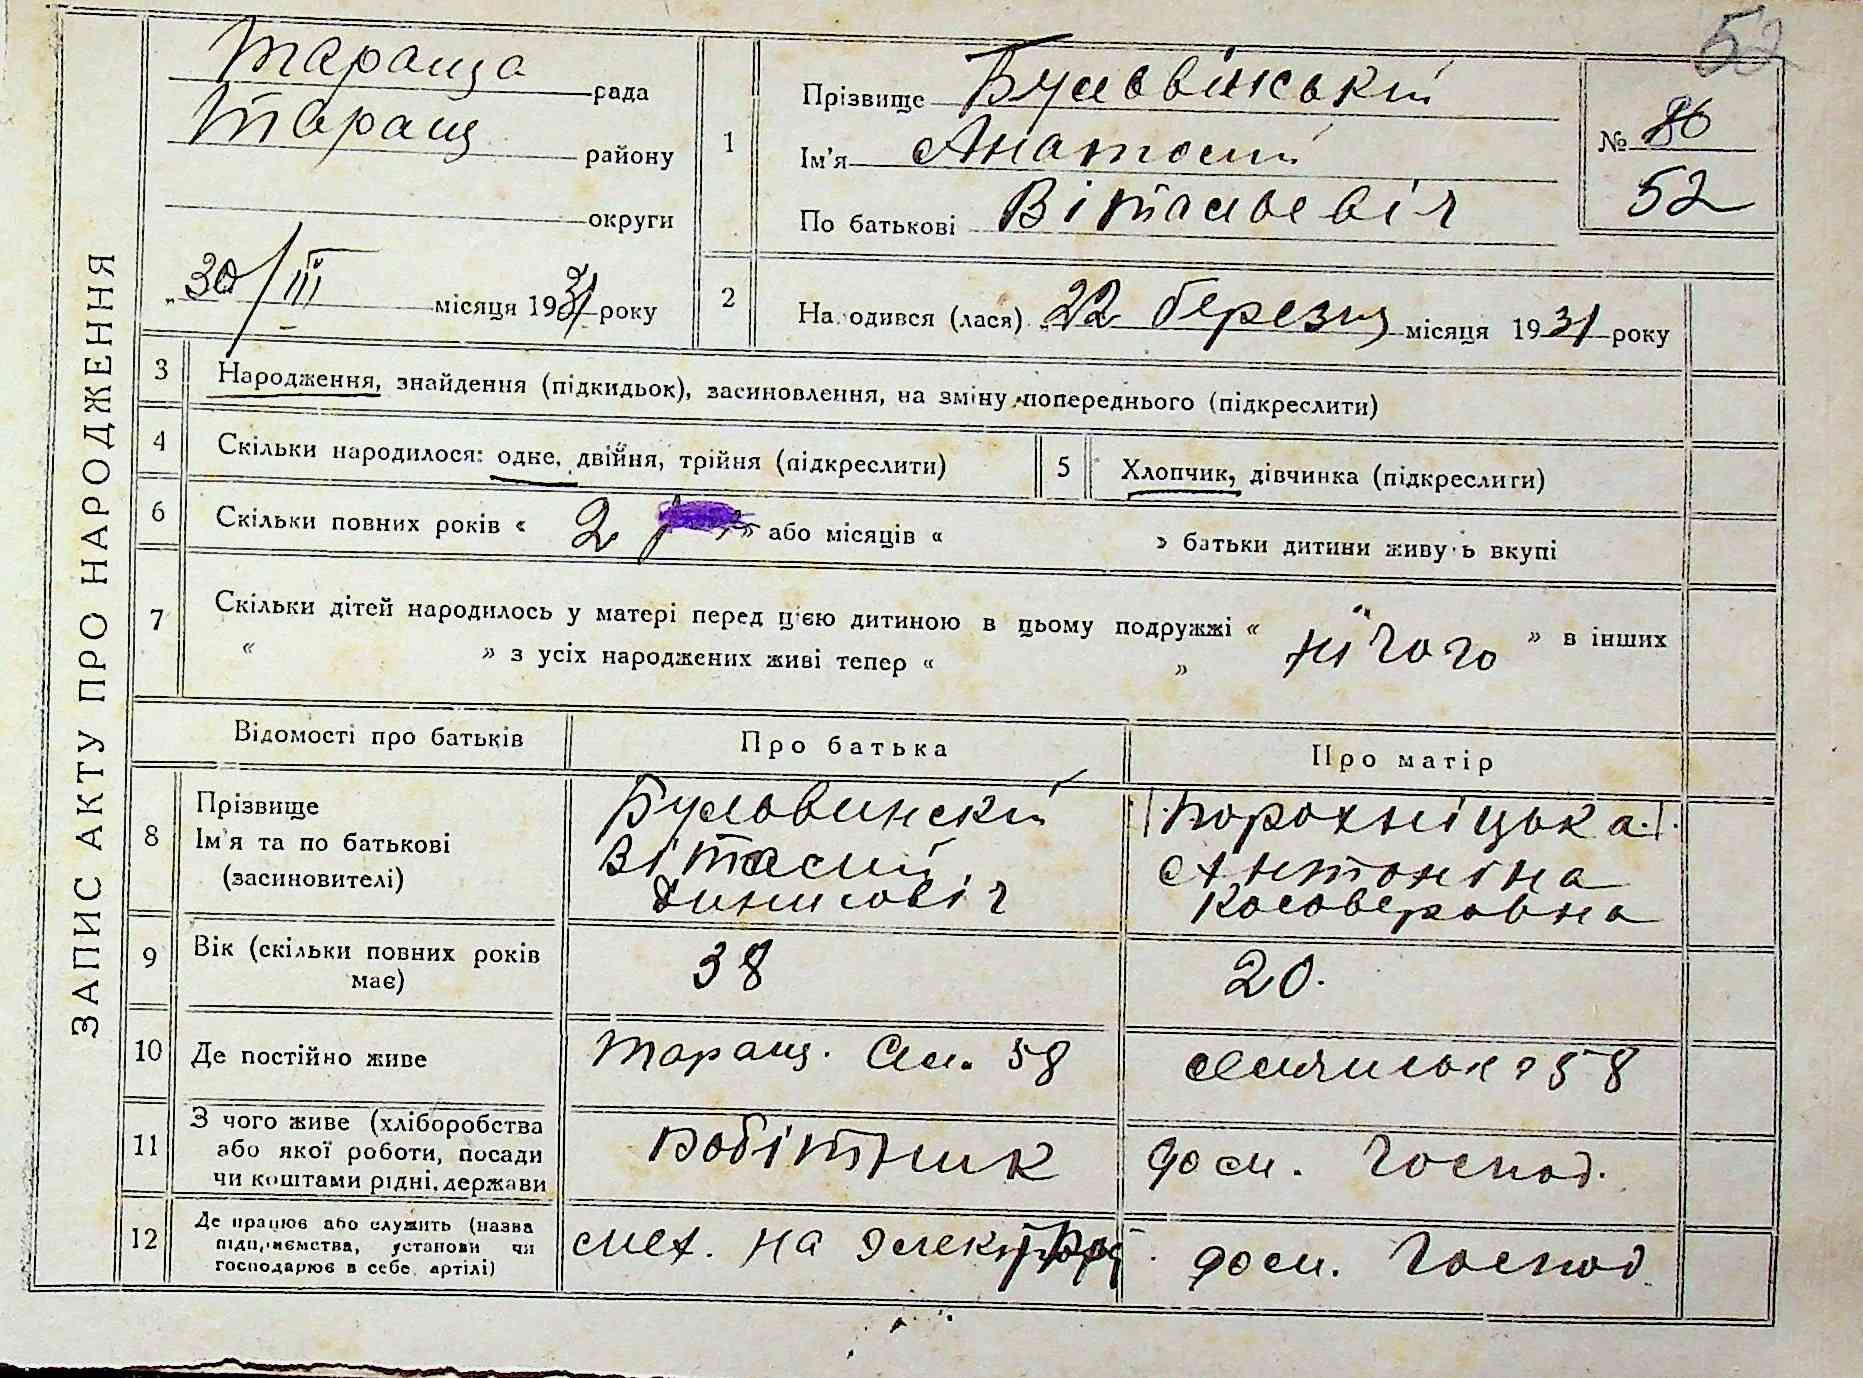 52
ЗАПИС АКТУ ПРО НАРОДЖЕННЯ
Тараща рада
Таращ район у
округи
„30/III місяця 1931 року
1
Прізвище Булавінській
Ім'я Анатолій
По батькові Вітальевіч
№ 86
52
2
На одився (лася) „22 березня місяця 1931 року
3 Народження, знайдення (підкидьок), засиновлення, на зміну попереднього (підкреслити)
4 Скільки народилося: одне, двійня, трійня (підкреслити)
5 Хлопчик, дівчинка (підкреслити)
6 Скільки повних років « 2 » або місяців « » батьки дитини живуть вкупі
7 Скільки дітей народилось у матері перед цією дитиною в цьому подружжі « нічого » в інших
« » з усіх народжених живі тепер « »
Відомості про батьків Про батька Про матір
8 Прізвище
Ім'я та по батькові
(засиновителі)
Буловинскій
Віталий
Динисовіч
Порохніцька
Антоніна
9 Вік (скільки повних років має) 38 20.
10 Де постійно живе Таращ. 58 58
11 З чого живе (хліборобства
або якої роботи, посади
чи коштами рідні, держави
Робітник дом. господ.
12 Де працює або служить (назва
підприємства, установи чи
господарює в себе, артілі)
мех. на дом. господ.